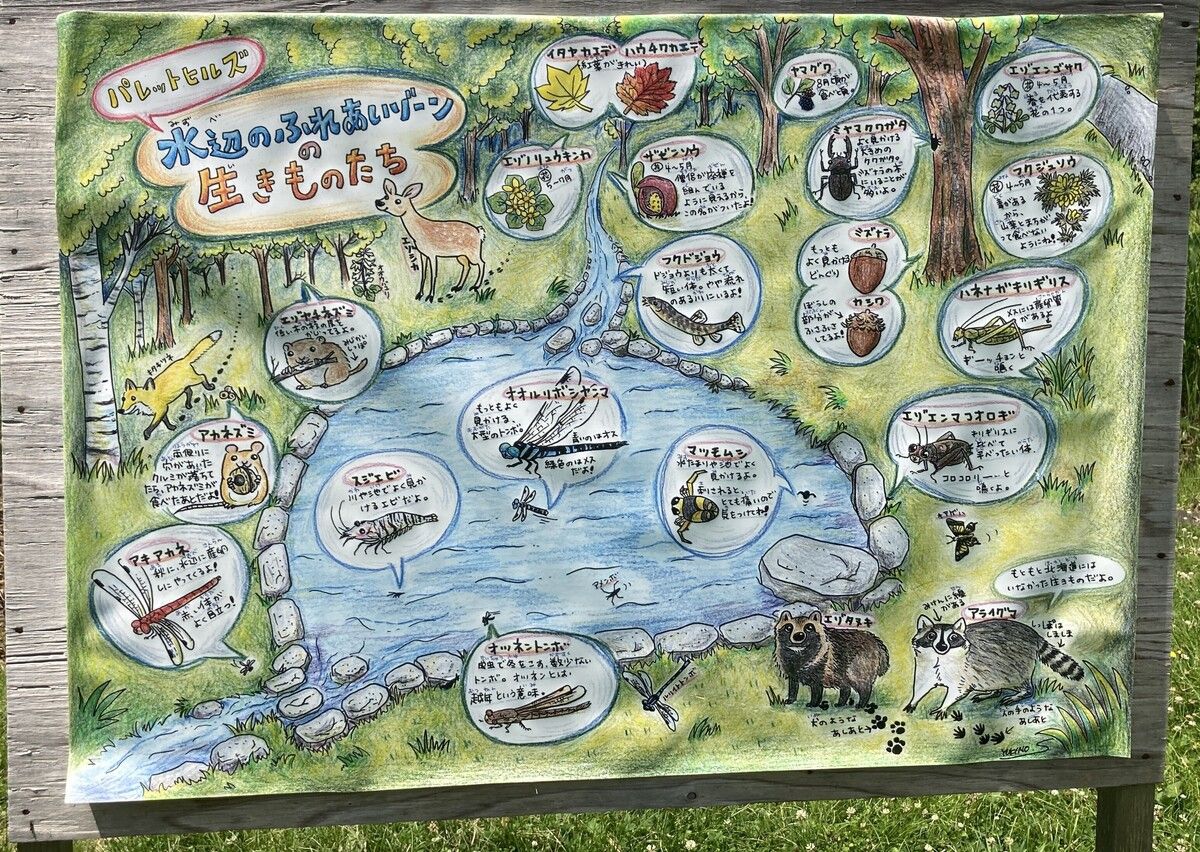 パレットヒルズ
みずべ
水辺のふれあいゾーン
の
生きものたち
イタヤカエデ ハウチワカエデ
(紅葉がきれい)
ヤマグワ
8月頃が
食べ頃
エゾエンゴサク
花 4〜5月
春を代表する
花の1つ。
エゾリュウキンカ
花
5〜7月
ザゼンソウ
花 4〜5月
僧侶が座禅を
組んでいる
ように見えるから、
この名がついたよ!
ミヤマクワガタ
よく見かける
大きめの
クワガタ。
ミズナラの木
フクジュソウ
花 4〜5月
毒がある
から、
山菜とまちが
って食べない
ようにね!
エゾシカ
フクドジョウ
ドジョウより太くて
短い体。やや流れ
のある川にいるよ!
ミズナラ
もっとも
よく見かける
どんぐり
カシワ
ぼうしの
部分が
ふさふさ
してるよ!
ハネナガキリギリス
メスには産卵管
があるよ
ギーッチョンと
鳴く
エゾヤチネズミ
キタキツネ
アカネズミ
両側に
穴があいた
クルミが落ちて
たら、アカネズミが
食べたあとだよ!
オオルリボシヤンマ
もっともよく
見かける、
大型のトンボ。
青いのはオス
緑色のはメス
だよ!
エゾエンマコオロギ
キリギリスに
比べて
平べったい体。
コロコロリーーと
鳴くよ。
スジエビ
川や池でよく見か
けるエビだよ。
マツモムシ
水たまりや池でよく
見かけるよ。
刺されると、
とても痛いので
気をつけてね!
アキアカネ
秋に水辺に産卵
しにやってくるよ!
赤い体が
よく目立つ!
アメンボ
もともと北海道には
いなかった生きものだよ。
オツネントンボ
成虫で冬をこす、数少ない
トンボ。オツネンとは、
越年という意味。
エゾタヌキ
犬のような
あしあと
みけんに線
がある
アライグマ
しっぽは
しましま
人の手のような
あしあと
YUKINO.S